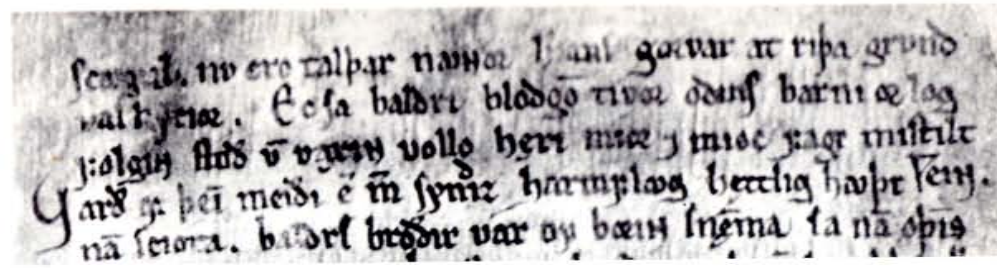 ſcogul. nv ero talþar nauɴor h ans gorvar at riþa grvnd
valkyrior. Ec ſa baldri blodgō tivor odinſ barni ørlog
ꝼolgiɴ ſtoð v̄ vaxiɴ vollo hęʀi mior ⁊ mioc ꝼagr miſtilt
Varð aꝼ þeī meiði ē m̄ ſyndiz harmꝼlꜹg hęttlig hꜹþr eiɴ.
nā ſciota. baldrſ broðir var oꝼ boriɴ ſnēma ſa nā oþiṡ